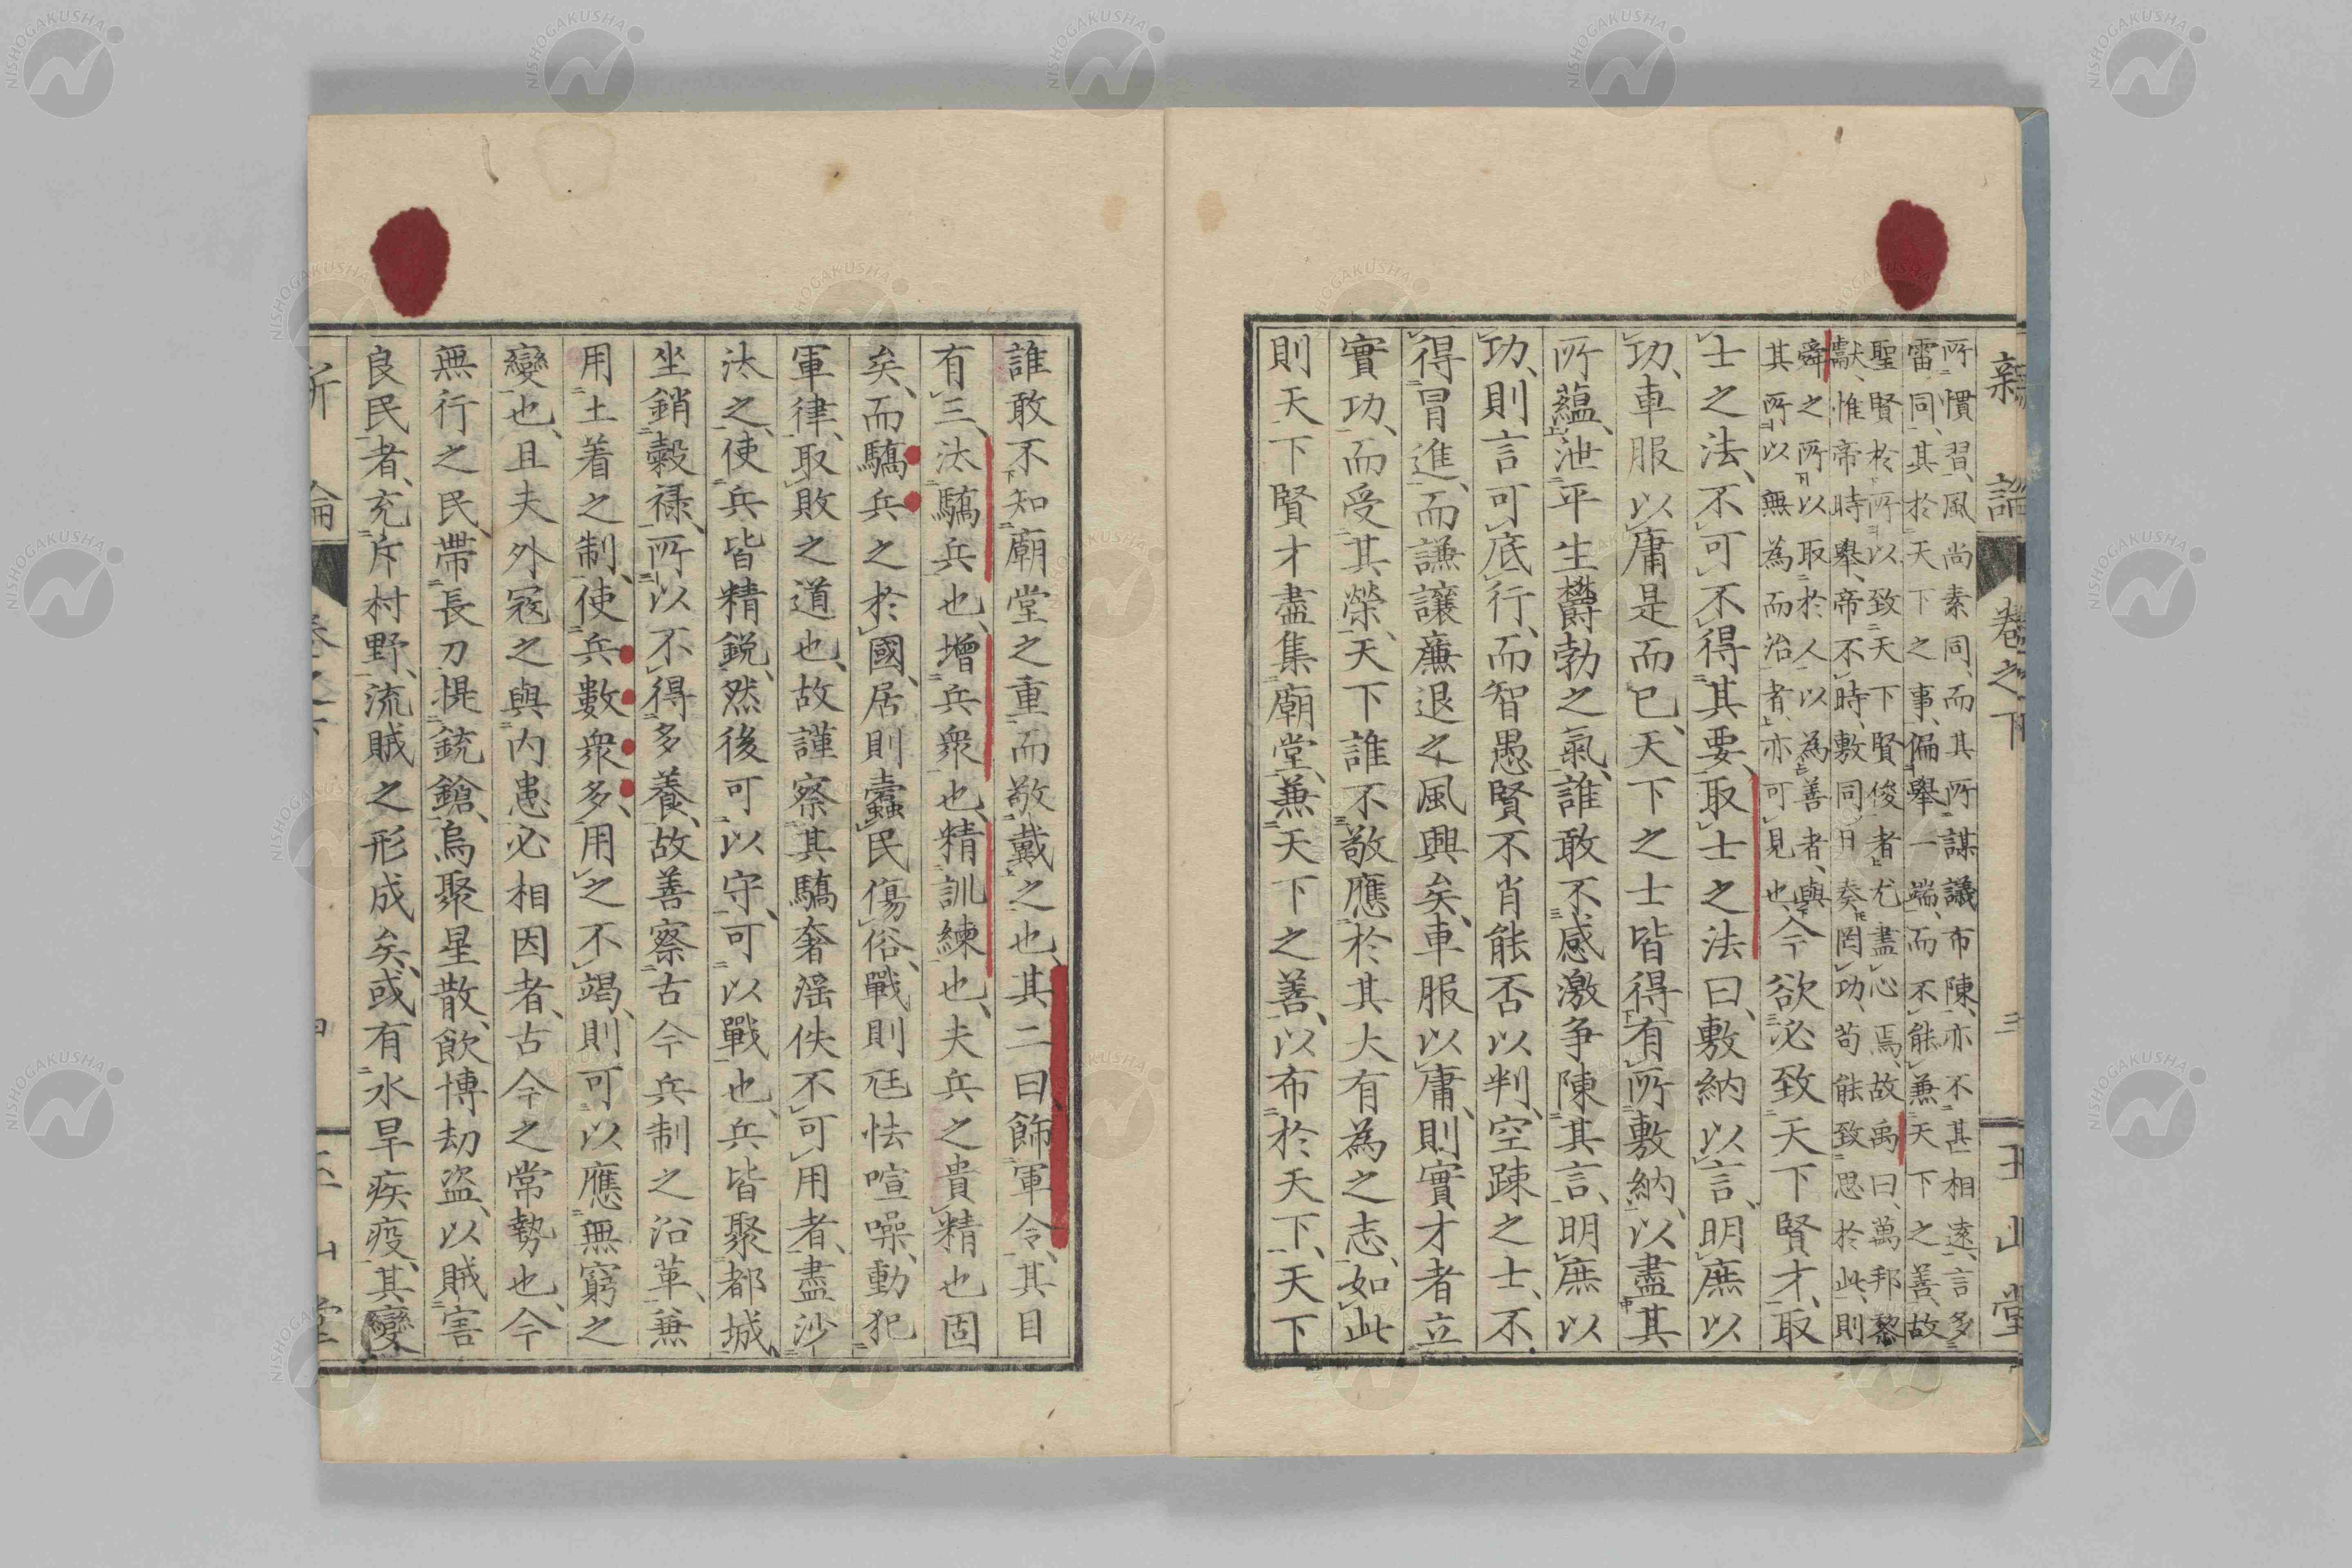 新論 卷之下 三 玉山堂
所慣習、風尚素同、而其所謀議布陳、亦不甚相遠、言多
雷同、其於天下之事、偏擧一端、而不能兼天下之善、故
聖賢於所以致天下賢俊者、尤盡心焉、故禹曰、萬邦黎
獻、惟帝時擧、帝不時、敷同日奏罔功、苟能致思於此、則
舜之所以取於人以為善者、與
其所以無為而治者、亦可見也、今欲必致天下賢才、取
士之法、不可不得其要、取士之法曰、敷納以言、明庶以
功、車服以庸是而已、天下之士皆得有所敷納、以盡其
所蘊、泄平生欝勃之氣、誰敢不感激争陳其言、明庶以
功、則言可底行、而智愚賢不肖能否以判、空踈之士、不
得冒進、而謙讓廉退之風興矣、車服以庸、則實才者立
實功、而受其榮、天下誰不敬應於其大有為之志、如此
則天下賢才盡集廟堂、兼天下之善、以布於天下、天下
誰敢不知廟堂之重而敬戴之也、其二曰、飾軍令、其目
有三、汰驕兵也、增兵衆也、精訓練也、夫兵之貴精也固
矣、而驕兵之於國、居則蠹民傷俗、戰則尫怯喧噪、動犯
軍律、取敗之道也、故謹察其驕奢淫佚不可用者、盡沙
汰之、使兵皆精銳、然後可以守、可以戰也、兵皆聚都城、
坐銷穀祿、所以不得多養、故善察古今兵制之沿革、兼
用土着之制、使兵數衆多、用之不竭、則可以應無窮之
變也、且夫外寇之與內患必相因者、古今之常勢也、今
無行之民、帶長刀提銃鎗、烏聚星散、飲博劫盜、以賊害
良民者、充斥村野、流賊之形成矣、或有水旱疾疫、其變